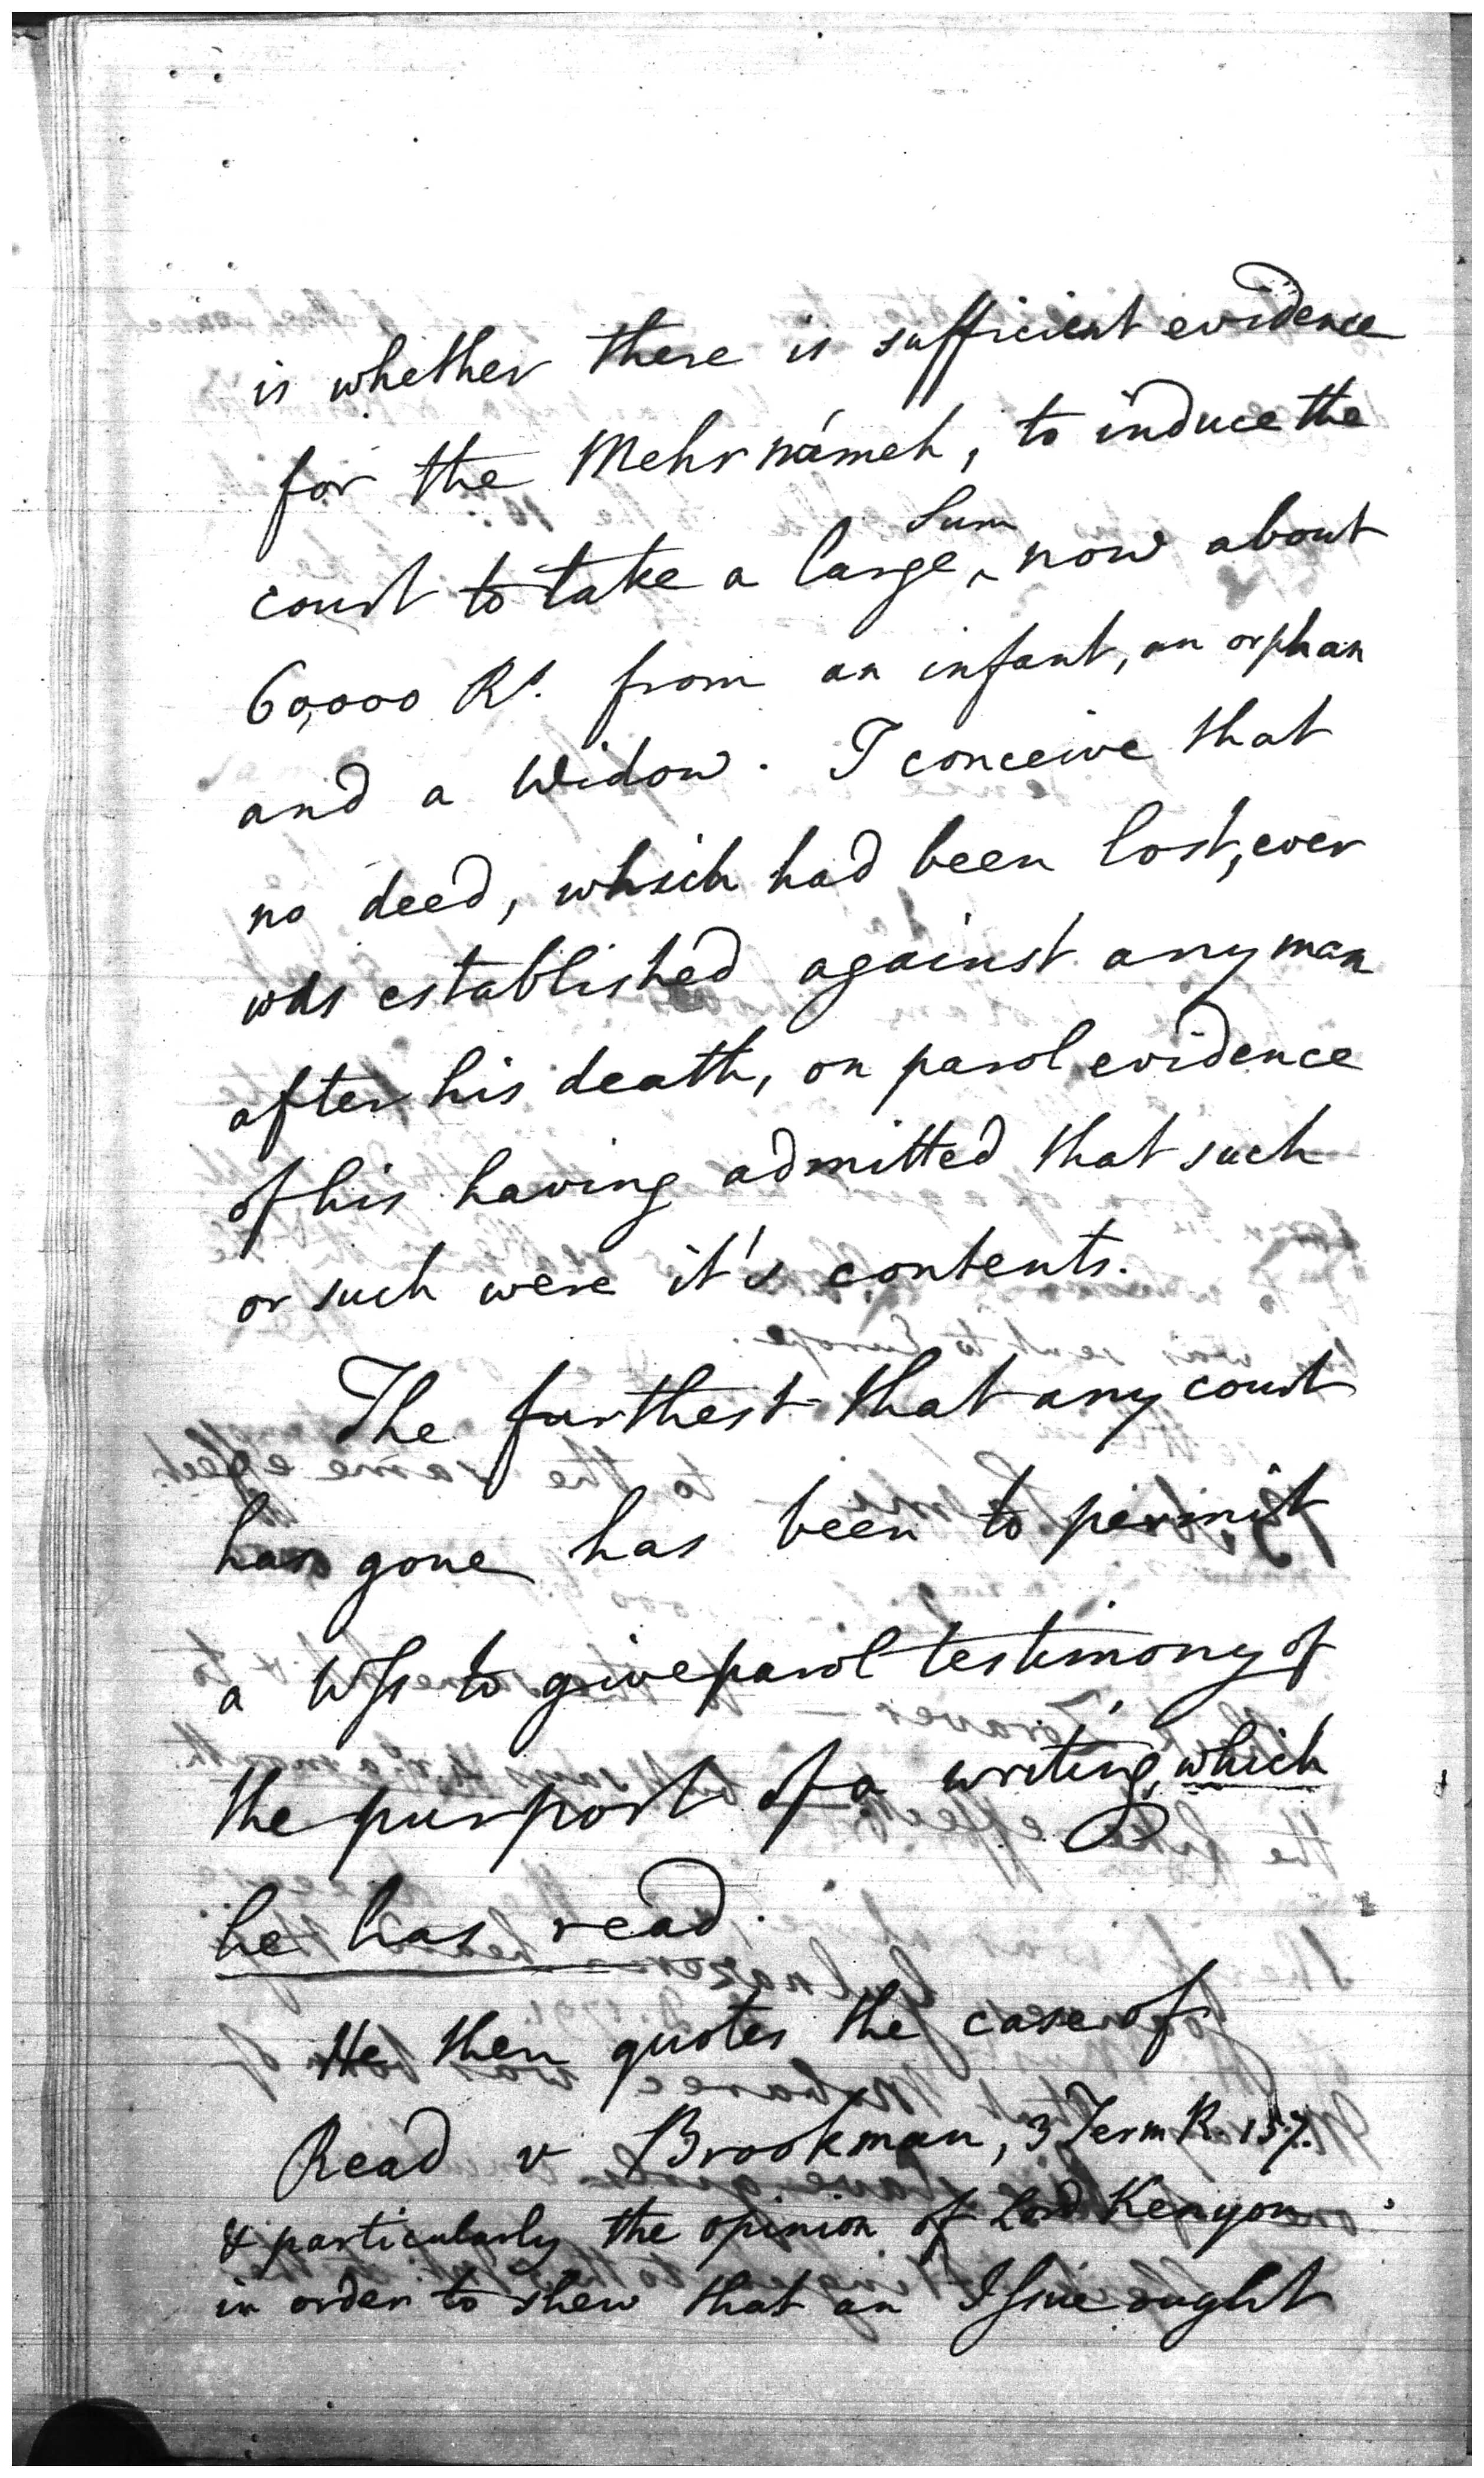 is whether there is sufficient evidence
for the Mehr námeh, to induce the
court to take a large ^ Sum now about
60,000 Rs. from an infant, an orphan
and a Widow. I conceive that
no deed, which had been lost, ever
was established against any man
after his death, on parol evidence
of his having admitted that such
or such were it's contents.
The furthest that any court
has gone has been to permit
a Wss to give parol testimony of
the purport of a writing, which
he has read.
He then quotes the case of
Read v Brookman, 3 Term R. 157.
& particularly the opinion of Lord Kenyon
in order to shew that an Issue ought